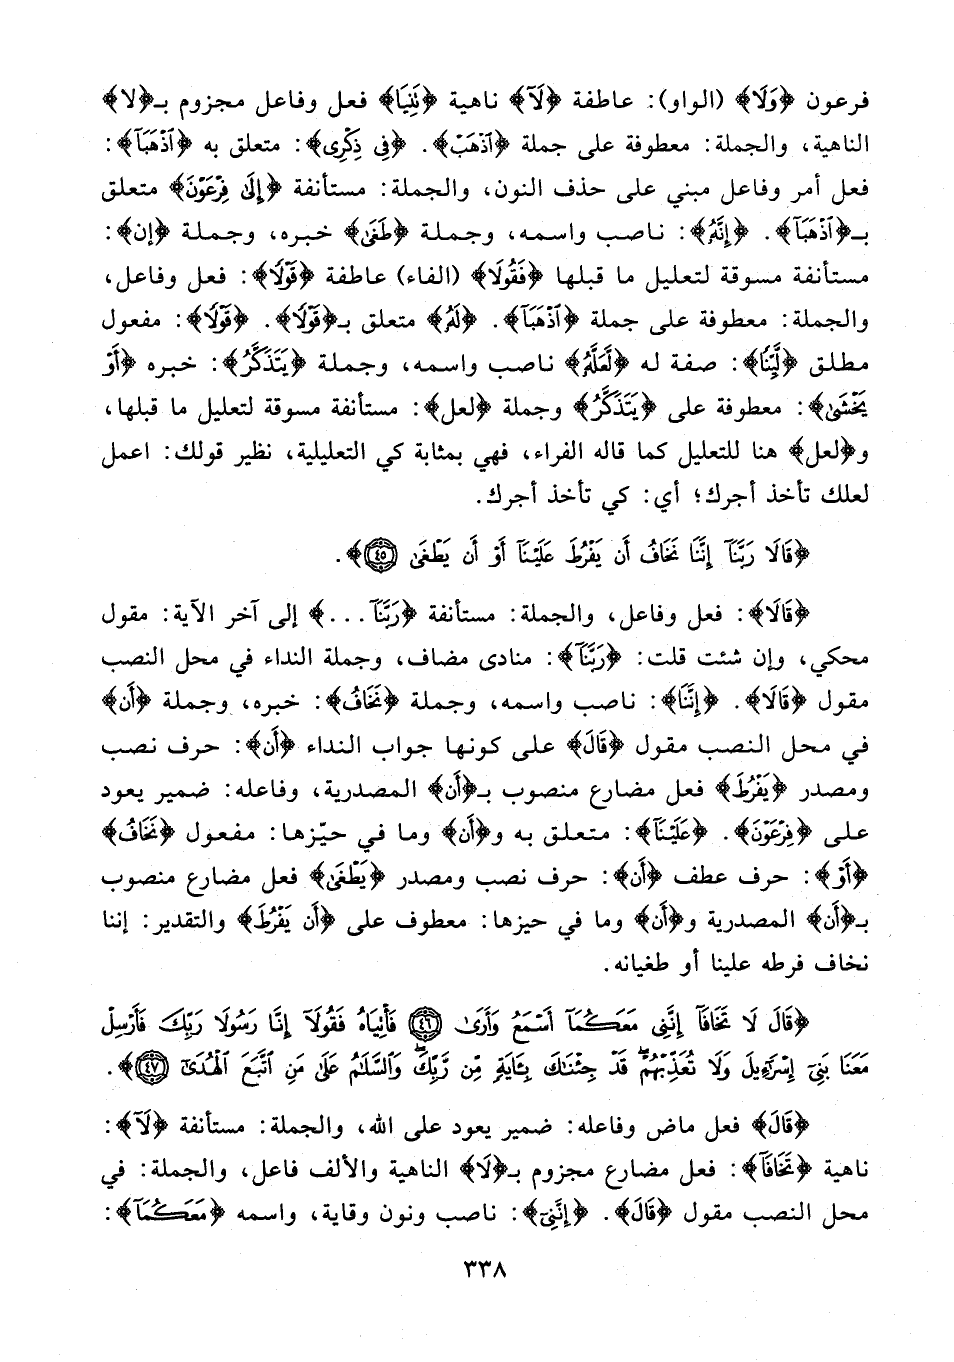 فرعون ﴿وَلَا﴾ (الواو): عاطفة ﴿لَآ﴾ ناهية ﴿تَنِيَا﴾ فعل وفاعل مجزوم بـ﴿لا﴾
الناهية، والجملة: معطوفة على جملة ﴿ٱذْهَبْ﴾. ﴿فِي ذِكْرِي﴾: متعلق به ﴿ٱذْهَبَآ﴾:
فعل أمر وفاعل مبني على حذف النون، والجملة: مستأنفة ﴿إِلَىٰ فِرْعَوْنَ﴾ متعلق
بـ﴿ٱذْهَبَآ﴾. ﴿إِنَّهُۥ﴾: ناصب واسمه، وجملة ﴿طَغَىٰ﴾ خبره، وجملة ﴿إن﴾:
مستأنفة مسوقة لتعليل ما قبلها ﴿فَقُولَا﴾ (الفاء) عاطفة ﴿قَوْلًا﴾: فعل وفاعل،
والجملة: معطوفة على جملة ﴿ٱذْهَبَآ﴾. ﴿لَهُۥ﴾ متعلق بـ﴿قَوْلًا﴾. ﴿قَوْلًا﴾: مفعول
مطلق ﴿لَّيِّنًا﴾: صفة له ﴿لَّعَلَّهُۥ﴾ ناصب واسمه، وجملة ﴿يَتَذَكَّرُ﴾: خبره ﴿أَوْ
يَخْشَىٰ﴾: معطوفة على ﴿يَتَذَكَّرُ﴾ وجملة ﴿لعل﴾: مستأنفة مسوقة لتعليل ما قبلها،
و﴿لعل﴾ هنا للتعليل كما قاله الفراء، فهي بمثابة كي التعليلية، نظير قولك: اعمل
لعلك تأخذ أجرك؛ أي: كي تأخذ أجرك.
﴿قَالَا رَبَّنَآ إِنَّنَا نَخَافُ أَن يَفْرُطَ عَلَيْنَآ أَوْ أَن يَطْغَىٰ ٤٥﴾.
﴿قَالَا﴾: فعل وفاعل، والجملة: مستأنفة ﴿رَبَّنَآ . . .﴾ إلى آخر الآية: مقول
محكي، وإن شئت قلت: ﴿رَبَّنَآ﴾: منادى مضاف، وجملة النداء في محل النصب
مقول ﴿قَالَا﴾. ﴿إِنَّنَا﴾: ناصب واسمه، وجملة ﴿نَخَافُ﴾: خبره، وجملة ﴿أَن﴾
في محل النصب مقول ﴿قَالَ﴾ على كونها جواب النداء ﴿أَن﴾: حرف نصب
ومصدر ﴿يَفْرُطَ﴾ فعل مضارع منصوب بـ﴿أَن﴾ المصدرية، وفاعله: ضمير يعود
على ﴿فِرْعَوْنَ﴾. ﴿عَلَيْنَآ﴾: متعلق به و﴿أَن﴾ وما في حيّزها: مفعول ﴿نَخَافُ﴾
﴿أَوْ﴾: حرف عطف ﴿أَن﴾: حرف نصب ومصدر ﴿يَطْغَىٰ﴾ فعل مضارع منصوب
بـ﴿أَن﴾ المصدرية و﴿أَن﴾ وما في حيزها: معطوف على ﴿أَن يَفْرُطَ﴾ والتقدير: إننا
نخاف فرطه علينا أو طغيانه.
﴿قَالَ لَا تَخَافَآ إِنَّنِي مَعَكُمَآ أَسْمَعُ وَأَرَىٰ ٤٦ فَأْتِيَاهُ فَقُولَآ إِنَّا رَسُولَا رَبِّكَ فَأَرْسِلْ
مَعَنَا بَنِيٓ إِسْرَٰٓءِيلَ وَلَا تُعَذِّبْهُمْ ۖ قَدْ جِئْنَٰكَ بِـَٔايَةٍ مِّن رَّبِّكَ ۖ وَٱلسَّلَٰمُ عَلَىٰ مَنِ ٱتَّبَعَ ٱلْهُدَىٰٓ ٤٧﴾.
﴿قَالَ﴾ فعل ماض وفاعله: ضمير يعود على الله، والجملة: مستأنفة ﴿لَآ﴾:
ناهية ﴿تَخَافَآ﴾: فعل مضارع مجزوم بـ﴿لَا﴾ الناهية والألف فاعل، والجملة: في
محل النصب مقول ﴿قَالَ﴾. ﴿إِنَّنِيٓ﴾: ناصب ونون وقاية، واسمه ﴿مَعَكُمَآ﴾:
٣٣٨